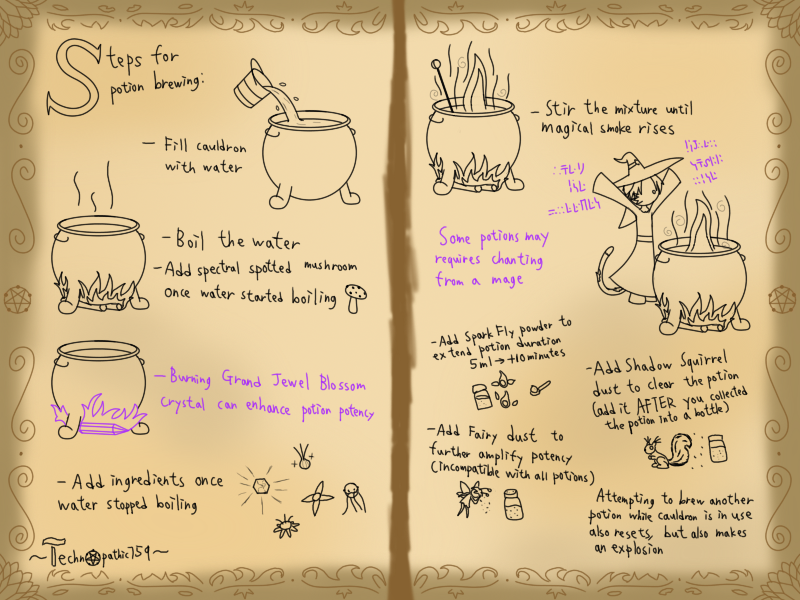 Steps for
potion brewing:
- Fill cauldron
with water
- Boil the water
- Add spectral spotted mushroom
once water started boiling
- Burning Grand Jewel Blossom
crystal can enhance potion potency
- Add ingredients once
water stopped boiling
~Techn pathic759~
- Stir the mixture until
magical smoke rises
Some potions may
requires chanting
from a mage
- Add Spark Fly powder to
extend potion duration
5ml → +10minutes
- Add Fairy dust to
further amplify potency
(incompatible with all potions)
- Add Shadow Squirrel
dust to clear the potion
(add it AFTER you collected
the potion into a bottle)
Attempting to brew another
potion while cauldron is in use
also resets, but also makes
an explosion